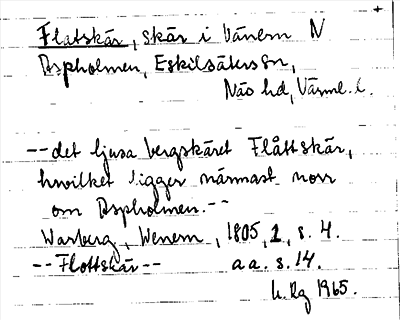 Flatskär, skär i Vänern N
Aspholmen, Eskilsäters sn,
Näs hd, Värml. l.
-- det ljusa bergskäret Flåttskär,
hwilket ligger närmast norr
om Aspholmen. --
Warberg, Wenern, 1805, 2, s. 4.
-- Flottskär -- a a. s. 14.
1965.